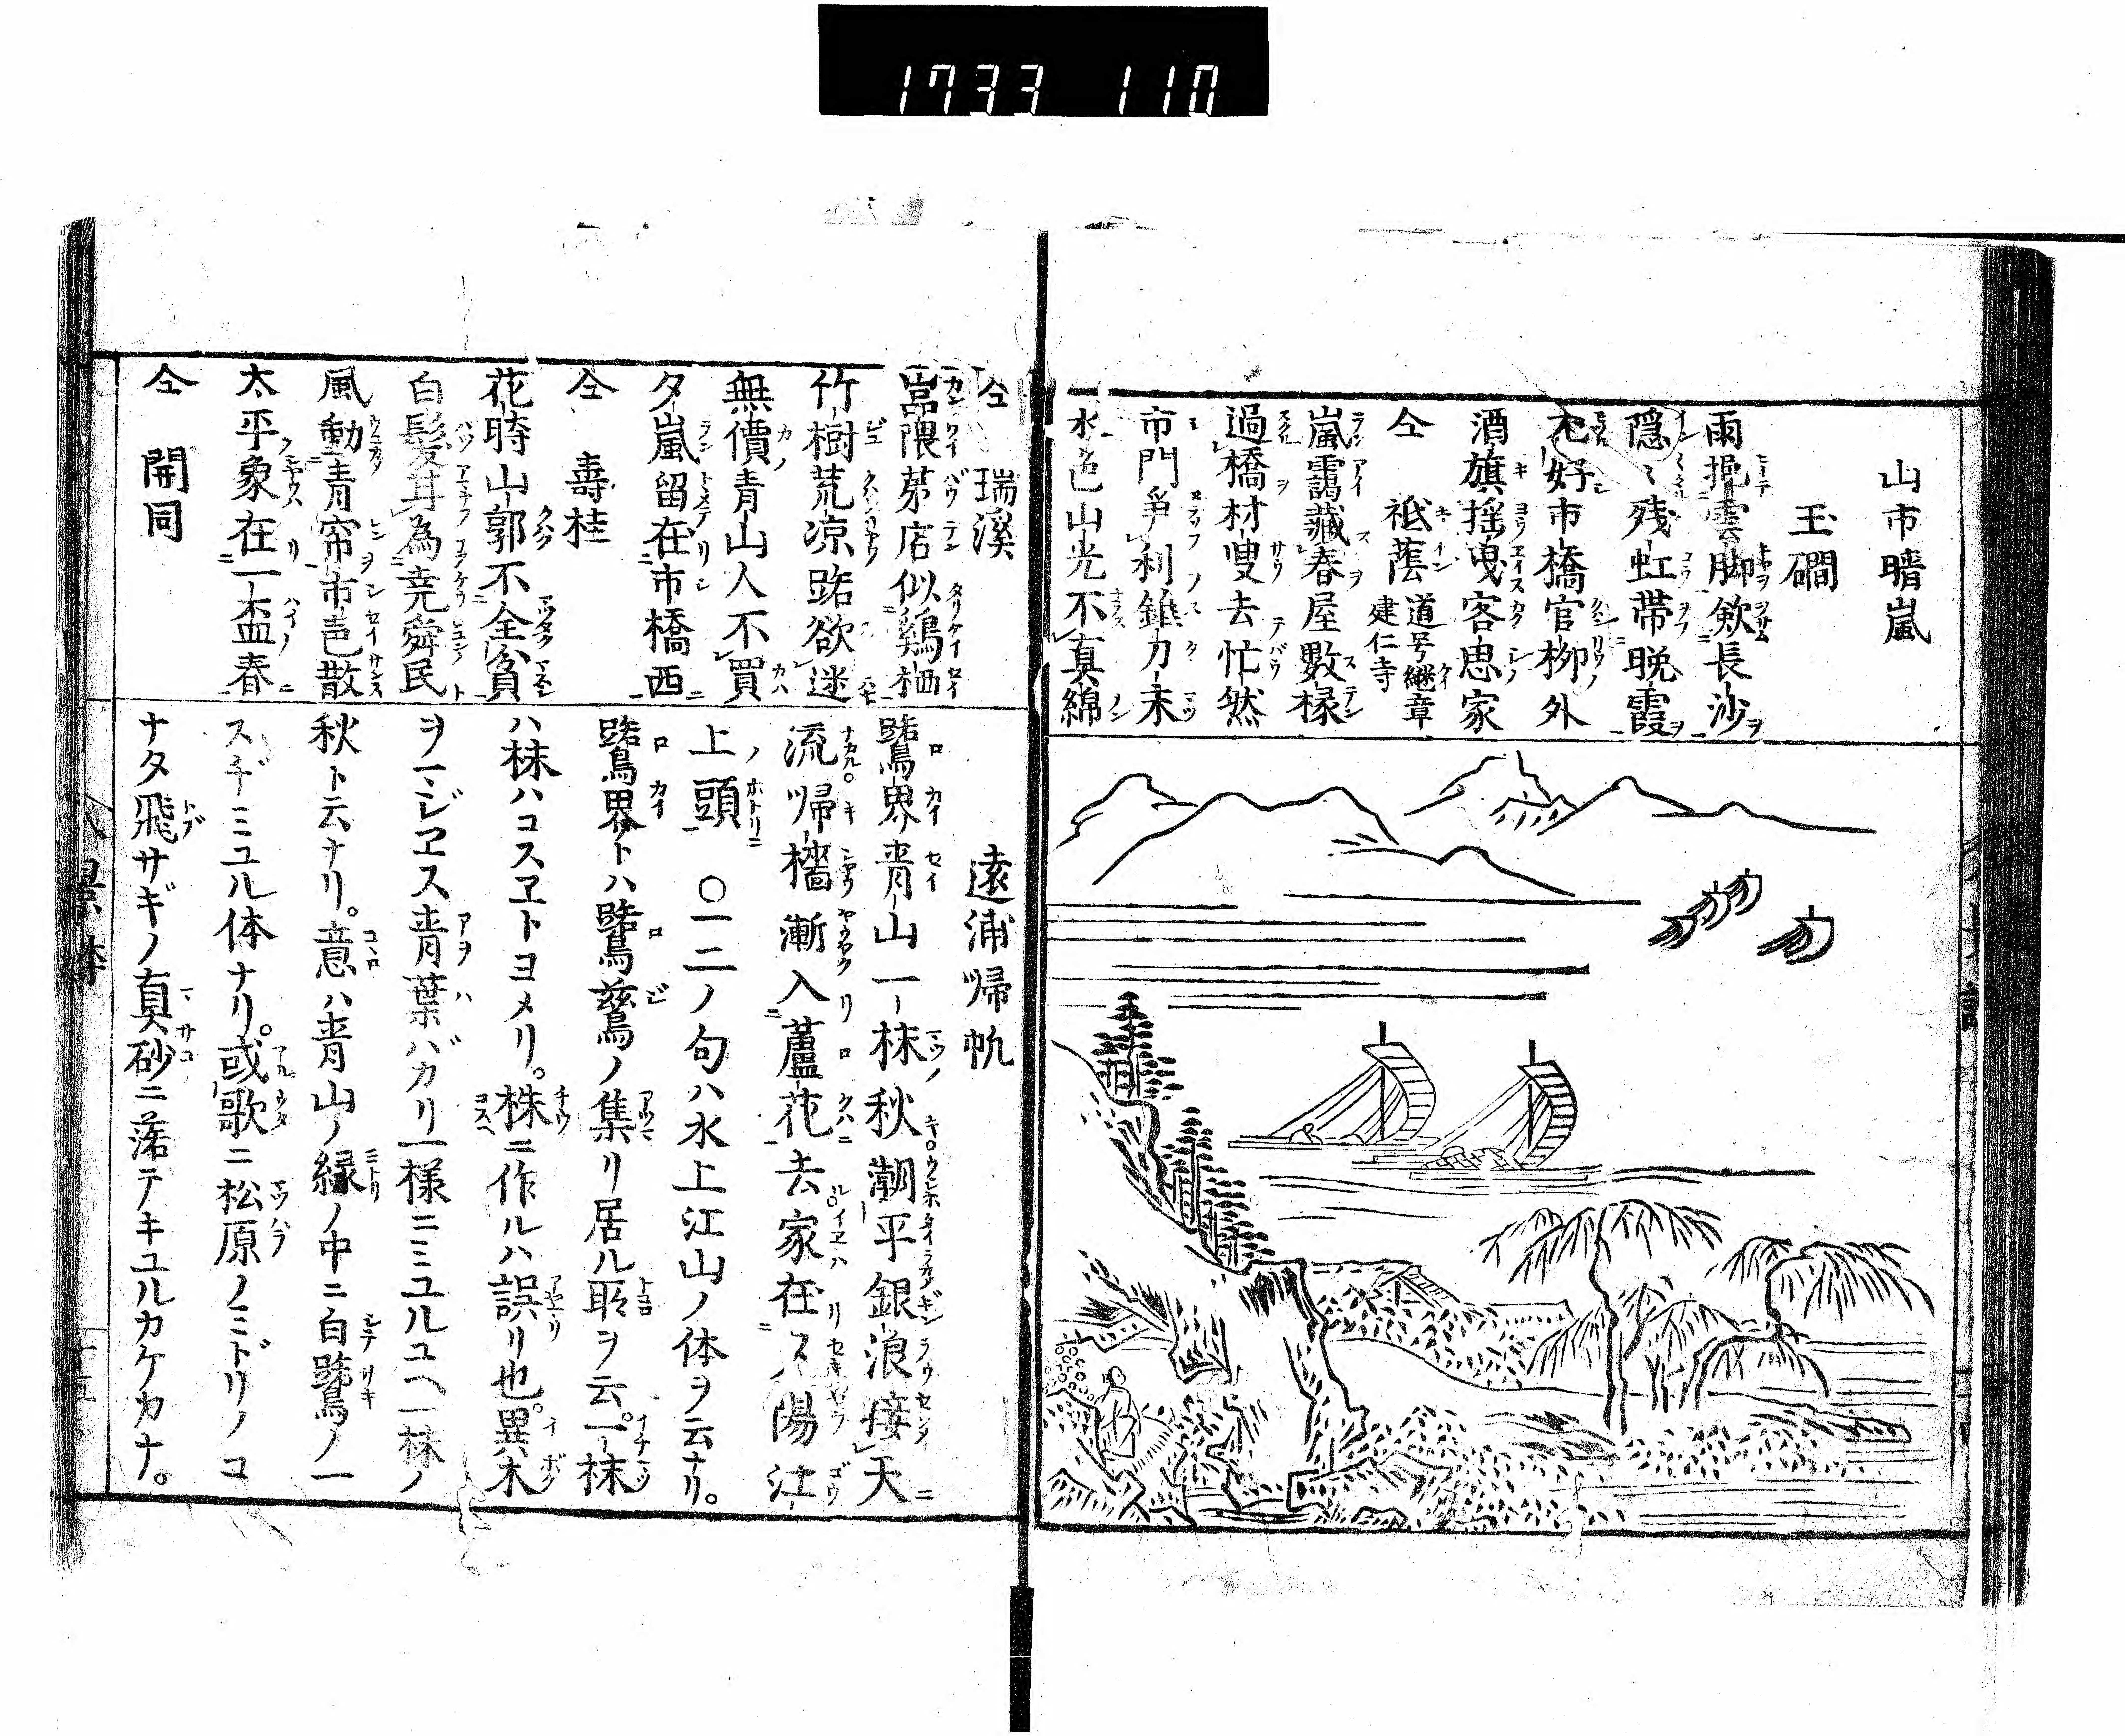 1733 110
山市晴嵐
玉磵
雨拖雲脚歛長沙
隠〻残虹帯晩霞
尤好市橋官柳外
酒旗揺曳客思家
仝 祗蔭 道号継章 建仁寺
嵐靄藏春屋數椽
過橋材叟去忙然
市門爭利錐刀末
水色山光不真綿
仝 瑞溪
嵓隈茅店似鷄栖
竹樹荒凉路欲迷
無價青山人不買
夕嵐留在市橋西
仝 壽桂
花時山郭不全貧
白髪耳為堯舜民
風動青帘市邑散
太平象在一盃春
仝 開同
遠浦帰帆
鷺界青山一抹秋潮平銀浪接天
流帰檣漸入蘆花去家在夕陽江
上頭 〇一二ノ句ハ水上江山ノ体ヲ云ナリ。
鷺界トハ鷺鷥ノ集リ居ル所ヲ云。一抹
ハ抹ハコスヱトヨメリ。株ニ作ルハ誤リ也。異木
ヲマジヱス青葉バカリ一様ニミユルユヘ一抹ノ
秋ト云ナリ。意ハ青山ノ緑ノ中ニ白鷺ノ一
スヂミユル体ナリ。或歌ニ松原ノミドリノコ
ナタ飛サギノ真砂ニ落テキユルカケカナ。